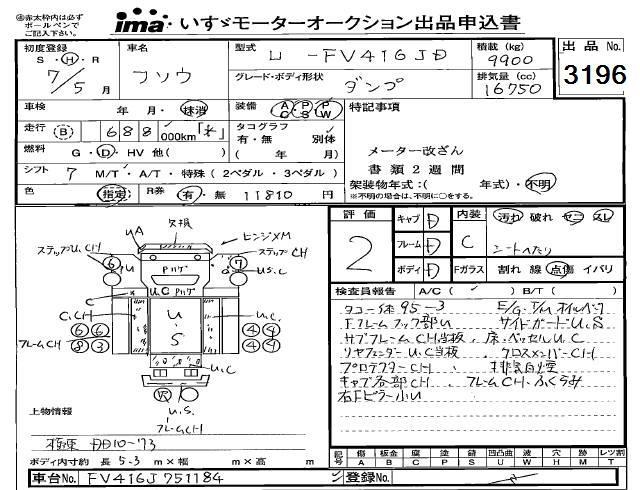 ④赤太枠内は必ず
ボールペンで
ご記入下さい。
ima いすゞモーターオークション出品申込書
初度登録
S・H・R
7/5月
車名
フソウ
型式
U-FV416JD
グレード・ボディ形状
ダンプ
積載 (kg)
9900
排気量 (cc)
16750
出品 No.
3196
車検 年 月・抹消
装備 AC PS PW
特記事項
走行 (B) 688,000km「*」
タコグラフ
有・無 別体
( 年 月)
メーター改ざん
書類2週間
燃料 G・D・HV 他( )
シフト 7 M/T・A/T・特殊(2ペダル・3ペダル)
架装物年式:( 年式)・不明
※不明の場合は、不明に○をする。
色 指定 R券 有・無 11810円
評価
2
キャブ D
フレーム D
ボディ D
内装 C
Fガラス
汚れ 破れ セニ スレ
シートへたり
割れ 線 点傷 イバリ
検査員報告 A/C( ✓ ) B/T( )
タコ一体95-3 E/G.T/Mオイルベタ
F.フレームフック部U サイドガードU.S
サブフレームCH当板 床・ベッセルU.C
リヤフェンダーU.C当板 クロスメンバーCH
プロテクターCH 排気白煙
キャブ各部CH フレームCH.ふくらみ
右Fピラー小U
交換
UA
ヒンジXM
ステップU.CH
ステップCH
6
U
Pハゲ
7
U.S.C
C
U.C Pハゲ
C.CH
U.S
U.C
6 6
8 3
フレームCH
4 4
4 4
U.C
R
U.S
フレームCH
上物情報
極東 DD10-73
ボディ内寸約 長 5.3 m×幅 m×高 m
記号 傷A 板金B 座C 塗P 錆S 凹凸曲U 波W 穴H 跡M レツ割T
車台No. FV416J751184
登録No.